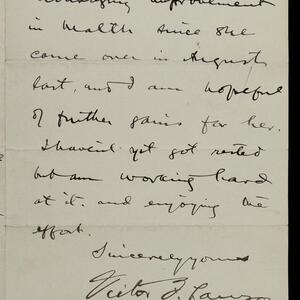 encouraging improvement
in health since she
came over in August
last, and I am hopeful
of further gains for her.
I haven't yet got rested
but am working hard
at it. and enjoying the
effort.
Sincerely yours
Victor F. Lawson